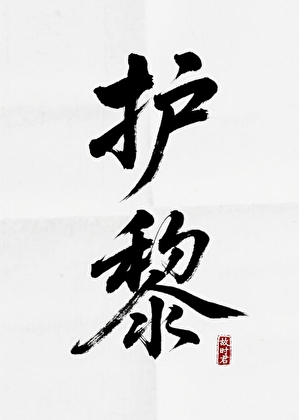 护
黎
故时君